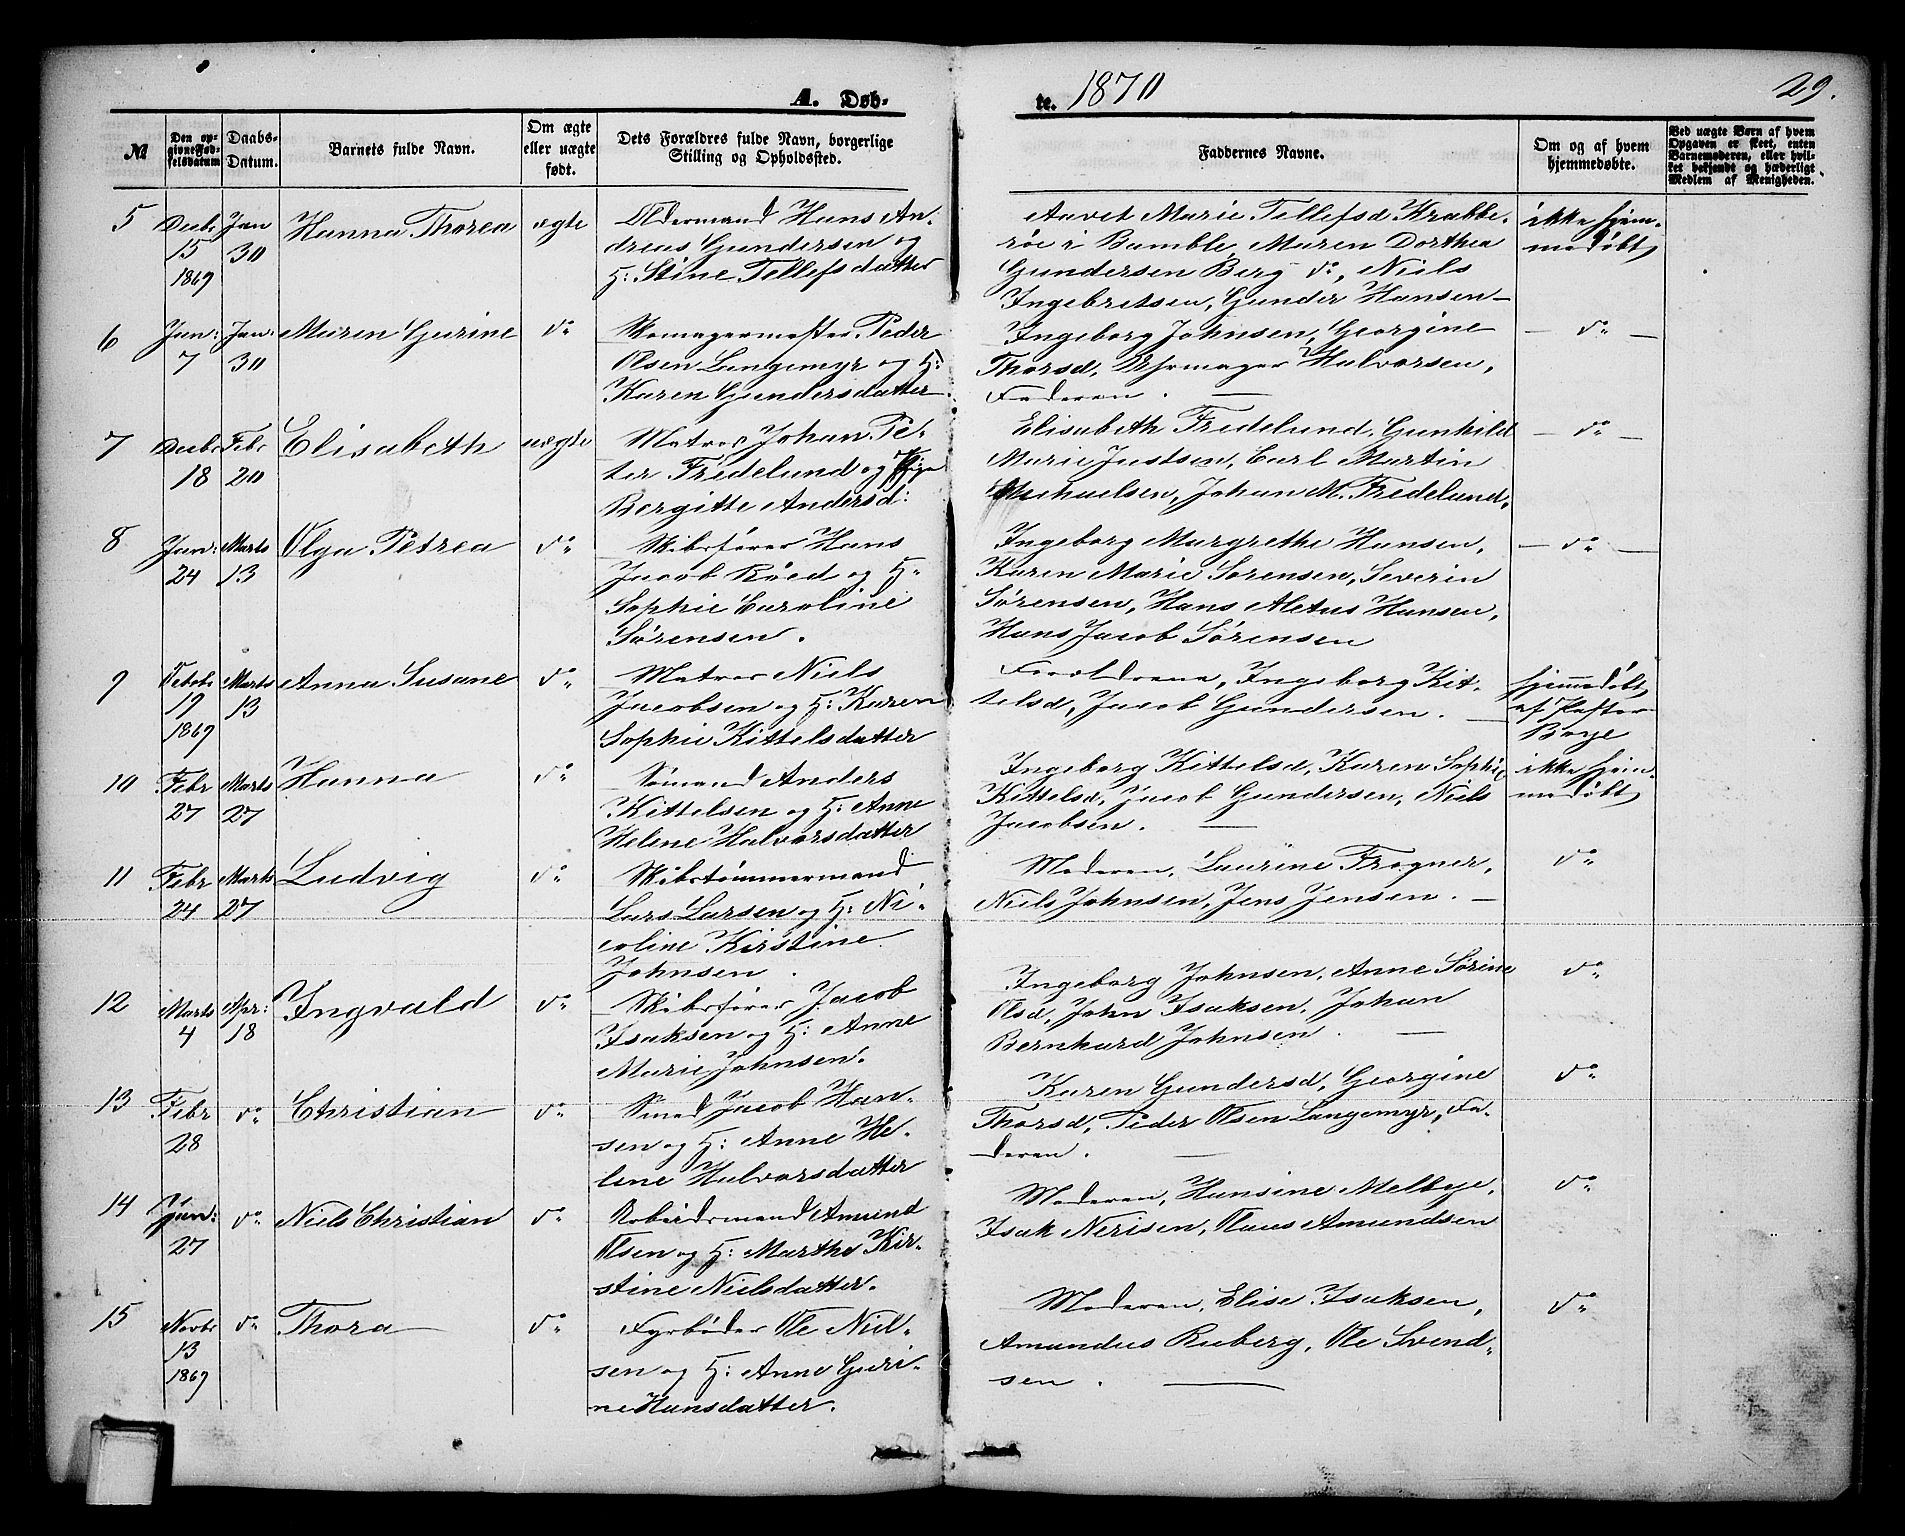 A. Døb-
te. 1870
29.
№
Den opgivne Fødselsdatum
Daabs-Datum.
Barnets fulde Navn.
Om ægte eller uægte født.
Dets Forældres fulde Navn, borgerlige Stilling og Opholdsted.
Faddernes Navne.
Om og af hvem hjemmedøbte.
Ved uægte Børn af hvem Opgaven er skeet, enten Barnemoderen, eller hvilket bekjendt og hæderligt Medlem af Menigheden.
5 Decbr 15 1869 Jan 30 Hanna Thorea ægte
Oldermand Hans An-
dreas Gundersen og
H: Stine Tellefsdatter
Marie Tellefsd Krabbe-
röe i Bamble, Maren Dorthea
Gundersen Berg do, Niels
Ingebretsen, Gunder Hansen —
ikke hjem-
medøbt
6 Jan: 7 Jan: 30 Maren Gurine do
Skomagermester Peder
Olsen Langemyr og H:
Karen Gundersdatter
Ingeborg Johnsen, Georgine
Thorsd, Uhrmager Halvorsen,
Faderen. —
— do —
7 Decbr 18 Febr 20 Elisabeth uægte
Matros Johan Pe-
ter Fredelund og Pige
Bergitte Andersd:
Elisabeth Fredelund, Gunhild
Marie Justsen, Carl Martin
Michaelsen, Johan M. Fredelund.
— do —
8 Jan: 24 Marts 13 Olga Petrea do
Skibsfører Hans
Jacob Röed og H:
Sophie Caroline
Sörensen.
Ingeborg Margrethe Hansen,
Karen Marie Sorensen, Severin
Sörensen, Hans Aletus Hansen,
Hans Jacob Sörensen
— do —
9 19 1869 Marts 13 Anna Susane do
Matros Niels
Jacobsen og H: Karen
Sophie Kittelsdatter
Forældrene, Ingeborg Kit-
telsd, Jacob Gundersen. —
hjemmedøbt
af Pastor
Boye
10 Febr 27 Marts 27 Hanna do
Sömand Anders
Kittelsen og H: Anne
Helene Halvorsdatter
Ingeborg Kittelsd, Karen Sophie
Kittelsd, Jacob Gundersen, Niels
Jacobsen. —
ikke hjem-
medøbt
11 Febr 24 Marts 27 Ludvig do
Skibstömmermand
Lars Larsen og H: Ni-
coline Kirstine
Johnsen.
Moderen, Laurine Frogner,
Niels Johnsen, Jens Jensen. —
do
12 Marts 4 Apr: 18 Ingvald do
Skibsfører Jacob
Isaksen og H: Anne
Marie Johnsen.
Ingeborg Johnsen, Anne Sörine
Olsd, John Isaksen, Johan
Bernhard Johnsen. —
do
13 Febr 28 do Christian do
Smed Jacob Han-
sen og H: Anne He-
lene Halvorsdatter
Karen Gundersd, Georgine
Thorsd, Peder Olsen Langemyr, Fa-
deren. —
do
14 Jan: 27 do Niels Christian do
Arbeidsmand Amund
Olsen og H: Marthe Kir-
stine Nielsdatter.
Moderen, Hansine Melbye,
Isak Nerisen, Claus Amundsen
do
15 Novbr 13 1869 do Thora do
Fyrböder Ole Niel-
sen og H: Anne Guri-
ne Hansdatter.
Moderen, Elise Isaksen,
Amundus Ruberg, Ole Svend-
sen. —
do